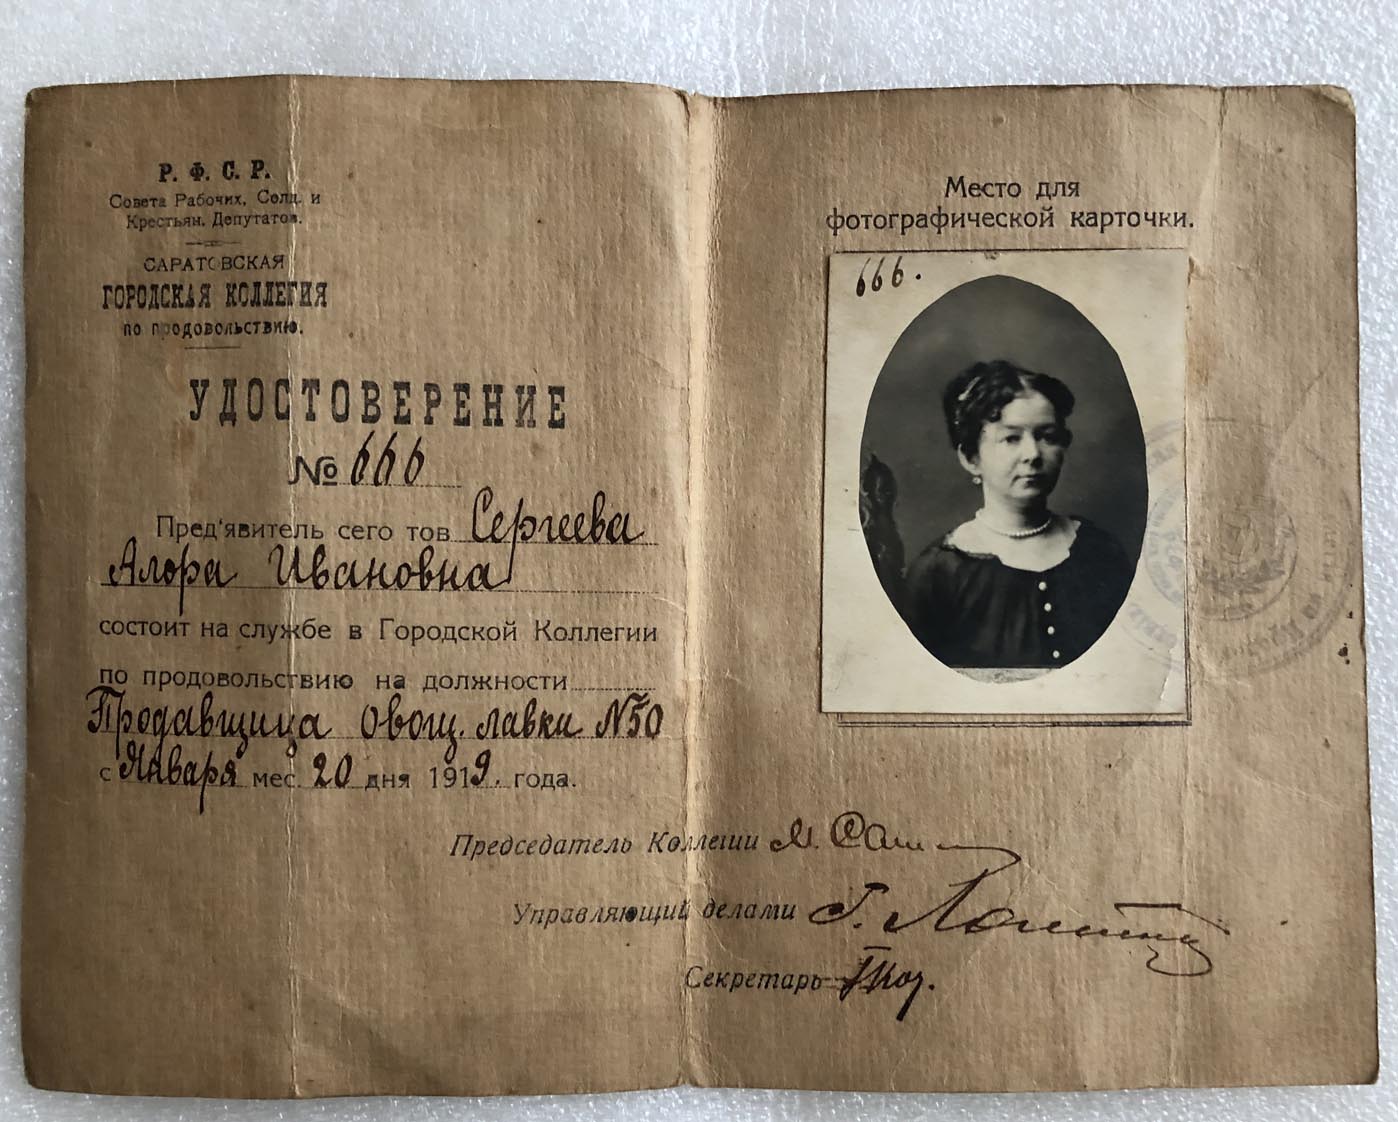 Р. Ф. С. Р.
Совета Рабочих, Солд. и
Крестьян. Депутатов.
САРАТОВСКАЯ
ГОРОДСКАЯ КОЛЛЕГИЯ
по продовольствию.
УДОСТОВЕРЕНИЕ
№ 666
Пред'явитель сего тов Сергеева
Алора Ивановна
состоит на службе в Городской Коллегии
по продовольствию на должности
Продавщица овощ. лавки №50
с Января мес. 20 дня 1919. года.
Место для
фотографической карточки.
666.
Председатель Коллегии М.
Управляющий делами Г.
Секретарь